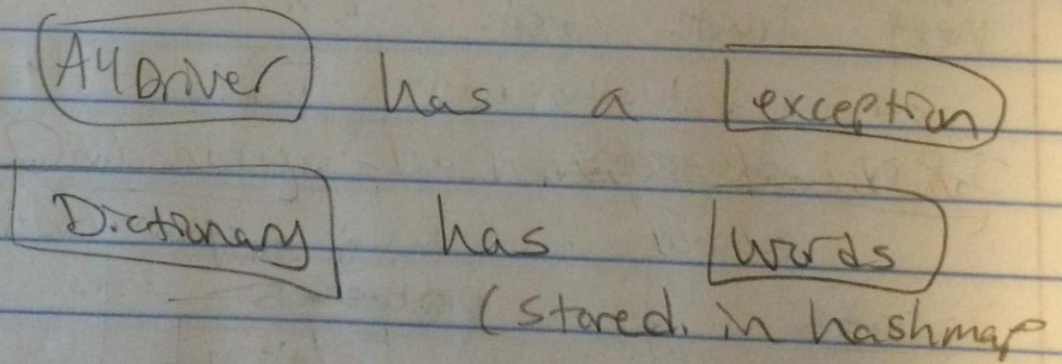 A4Driver has a exception
Dictionary has words
(stored in hashmap